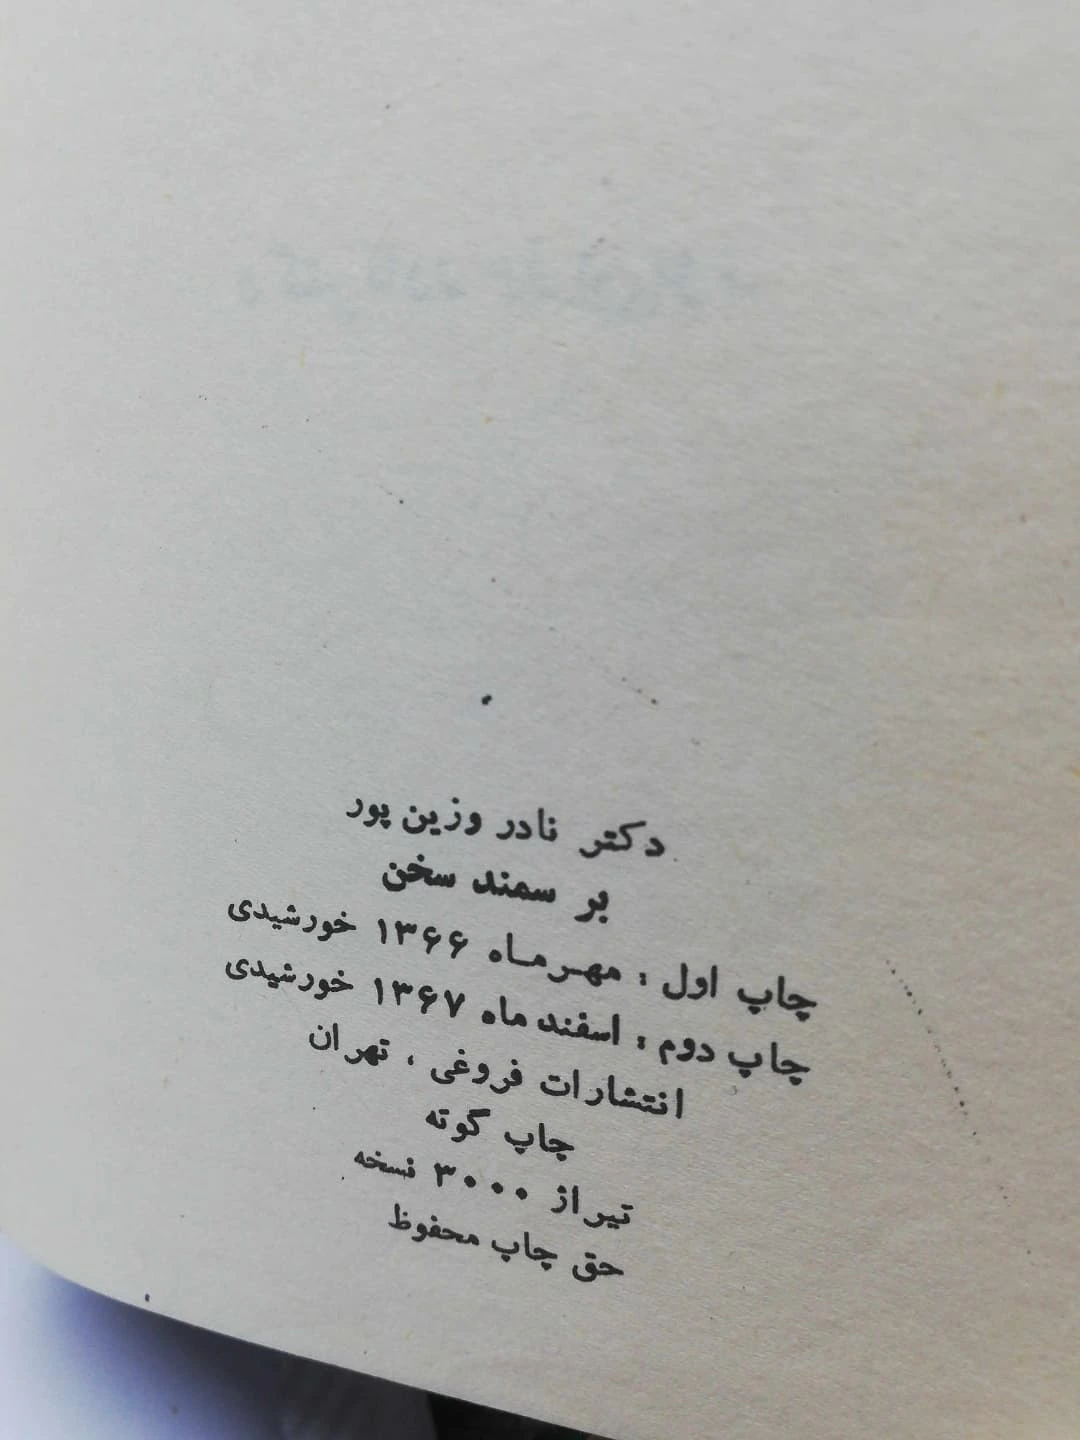 دکتر نادر وزین پور
بر سمند سخن
چاپ اول : مهرماه ۱۳۶۶ خورشیدی
چاپ دوم : اسفند ماه ۱۳۶۷ خورشیدی
انتشارات فروغی ، تهران
چاپ گوته
تیراژ ۳۰۰۰ نسخه
حق چاپ محفوظ